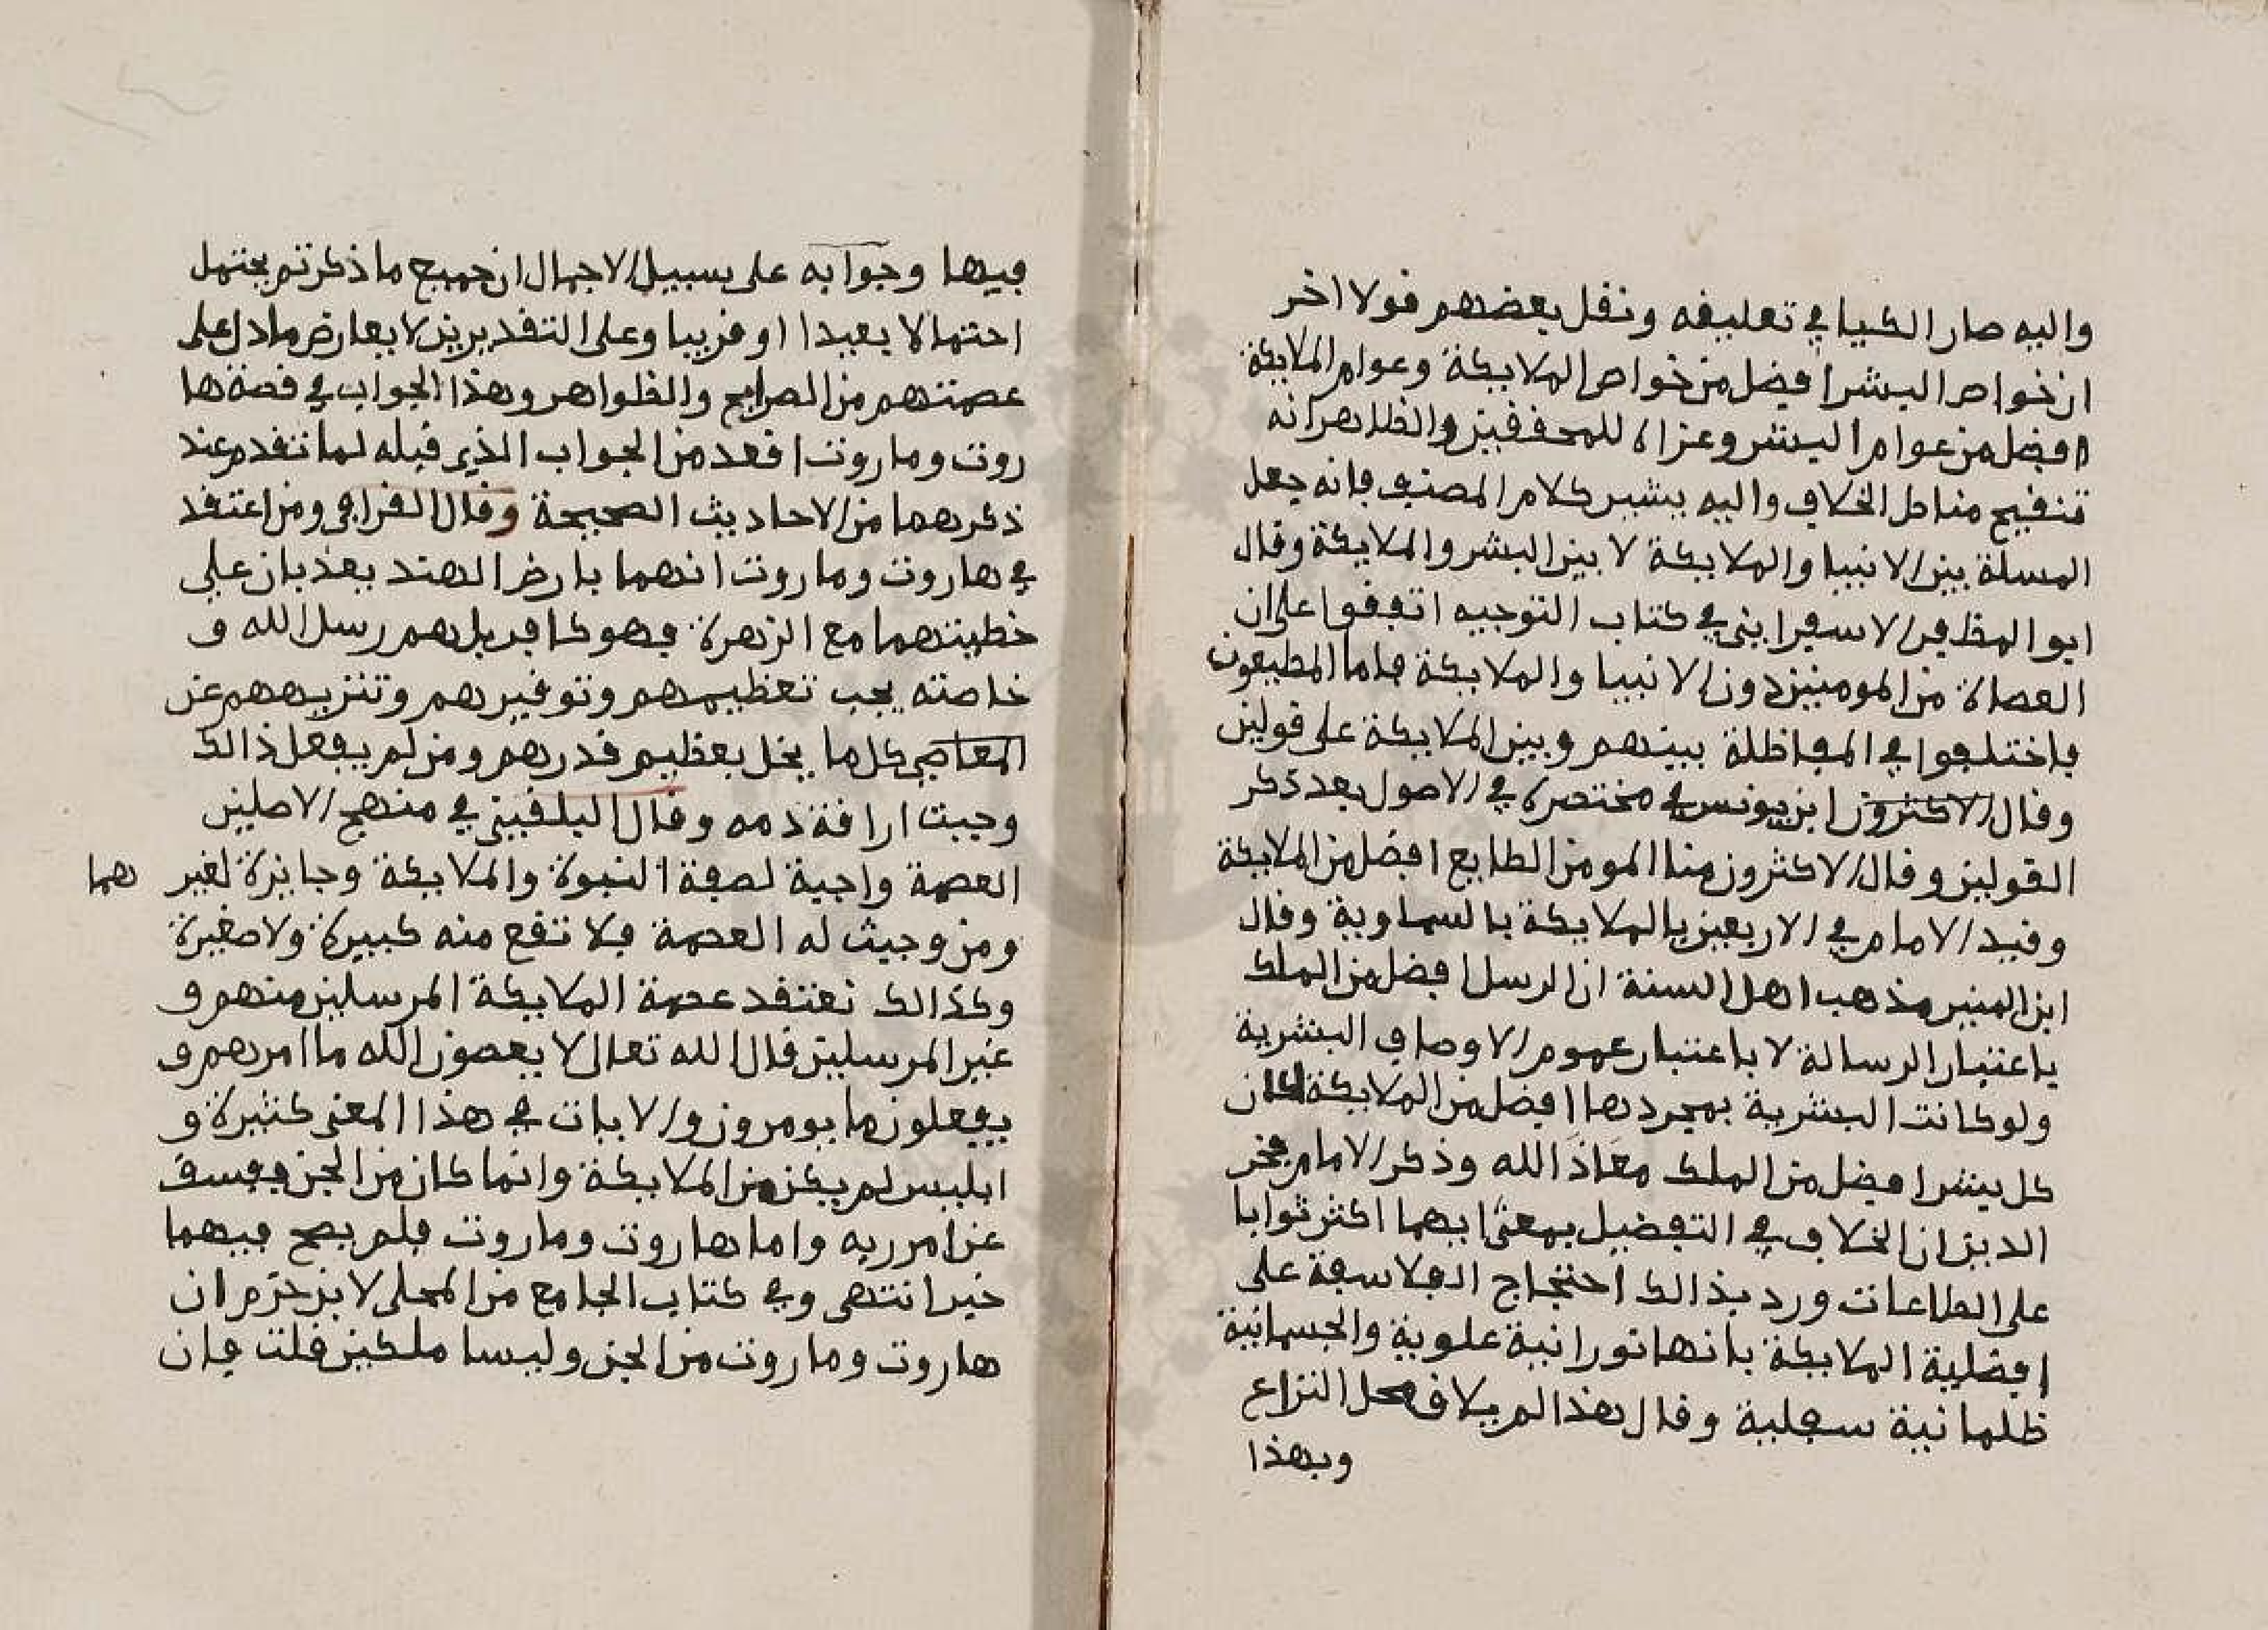 واليه صار الكيا في تعليقه ونقل بعضهم قولا اخر
ان خواص البشر افضل من خواص الملايكة وعوام الملايكة
افضل من عوام البشر وعزاه للمحققين والظاهر انه
تنقيح مناط الخلاف واليه يشير كلام المصنف فانه جعل
المسلة بين الانبيا والملايكة لا بين البشر والملايكة وقال
ابو المظفر الاسفرايني في كتاب التوجيه اتفقوا على ان
العصاة من المومنين دون الانبيا والملايكة فاما المطيعون
فاختلفوا في المفاظلة بينهم وبين الملايكة على قولين
وقال الاكثرون ابن يونس في مختصره في الاصول بعد ذكر
القولين وقال الاكثرون منا المومن الطايع افضل من الملايكة
وقيد الامام في الاربعين بالملايكة بالسماوية وقال
ابن المنير مذهب اهل السنة ان الرسل افضل من الملك
باعتبار الرسالة لا باعتبار عموم الاوصاف البشرية
ولو كانت البشرية بمجردها افضل من الملايكة لكان
كل بشر افضل من الملك معاذ الله وذكر الامام فخر
الدين ان الخلاف في التفضيل بمعنى ايهما اكثر ثوابا
على الطاعات ورد بذالك احتجاج الفلاسفة على
افضلية الملايكة بانها نورانية علوية والجسمانية
ظلمانية سفلية وقال هذا لم يلاق محل النزاع
وبهذا
فيها وجوابه على سبيل الاجمال ان جميع ما ذكرتم يحتمل
احتمالا بعيدا او قريبا وعلى التقديرين لا يعارض ما دل على
عصمتهم من الصرايح والظواهر وهذا الجواب في قصة ها
روت وماروت اقعد من الجواب الذي قبله لما تقدم عند
ذكرهما من الاحاديث الصحيحة وقال القرافي ومن اعتقد
في هاروت وماروت انهما بارض الهند يعذبان على
خطيتهما مع الزهرة فهو كافر بل هم رسل الله و
خاصته يجب تعظيمهم وتوقيرهم وتنزيههم عن
المعاصي كل ما يخل بعظيم قدرهم ومن لم يفعل ذالك
وجبت اراقة دمه وقال البلقيني في منهج الاصلين
العصمة واجبة لصفة النبوة والملايكة وجايزة لغير هما
ومن وجبت له العصمة فلا تقع منه كبيرة ولا صغيرة
وكذالك نعتقد عصمة الملايكة المرسلين منهم و
غير المرسلين قال الله تعالى لا يعصون الله ما امرهم و
يفعلون ما يومرون والايات في هذا المعنى كثيرة و
ابليس لم يكن من الملايكة وانما كان من الجن ففسق
عن امر ربه واما هاروت وماروت فلم يصح فيهما
خبر انتهى وفي كتاب الجامع من المحلى لابن حزم ان
هاروت وماروت من الجن وليسا ملكين قلت فان